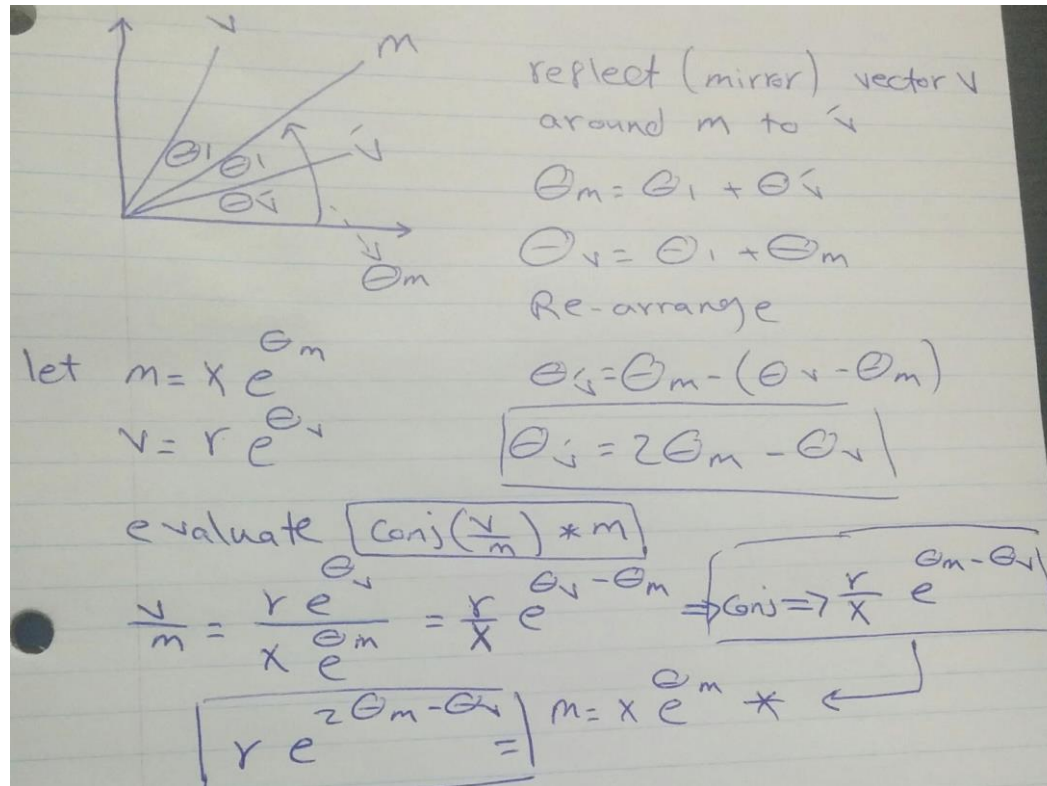 v
m
v́
θ₁
θ₁
θv́
θm
reflect (mirror) vector v
around m to v́
θm = θ₁ + θv́
θv = θ₁ + θm
Re-arrange
θv́ = θm - (θv - θm)
θv́ = 2θm - θv
let m = x e^θm
v = r e^θv
evaluate conj(v/m) * m
v/m = r e^θv / x e^θm = r/x e^θv-θm ⇒ conj ⇒ r/x e^θm-θv
r e^2θm-θv = m = x e^θm * ←